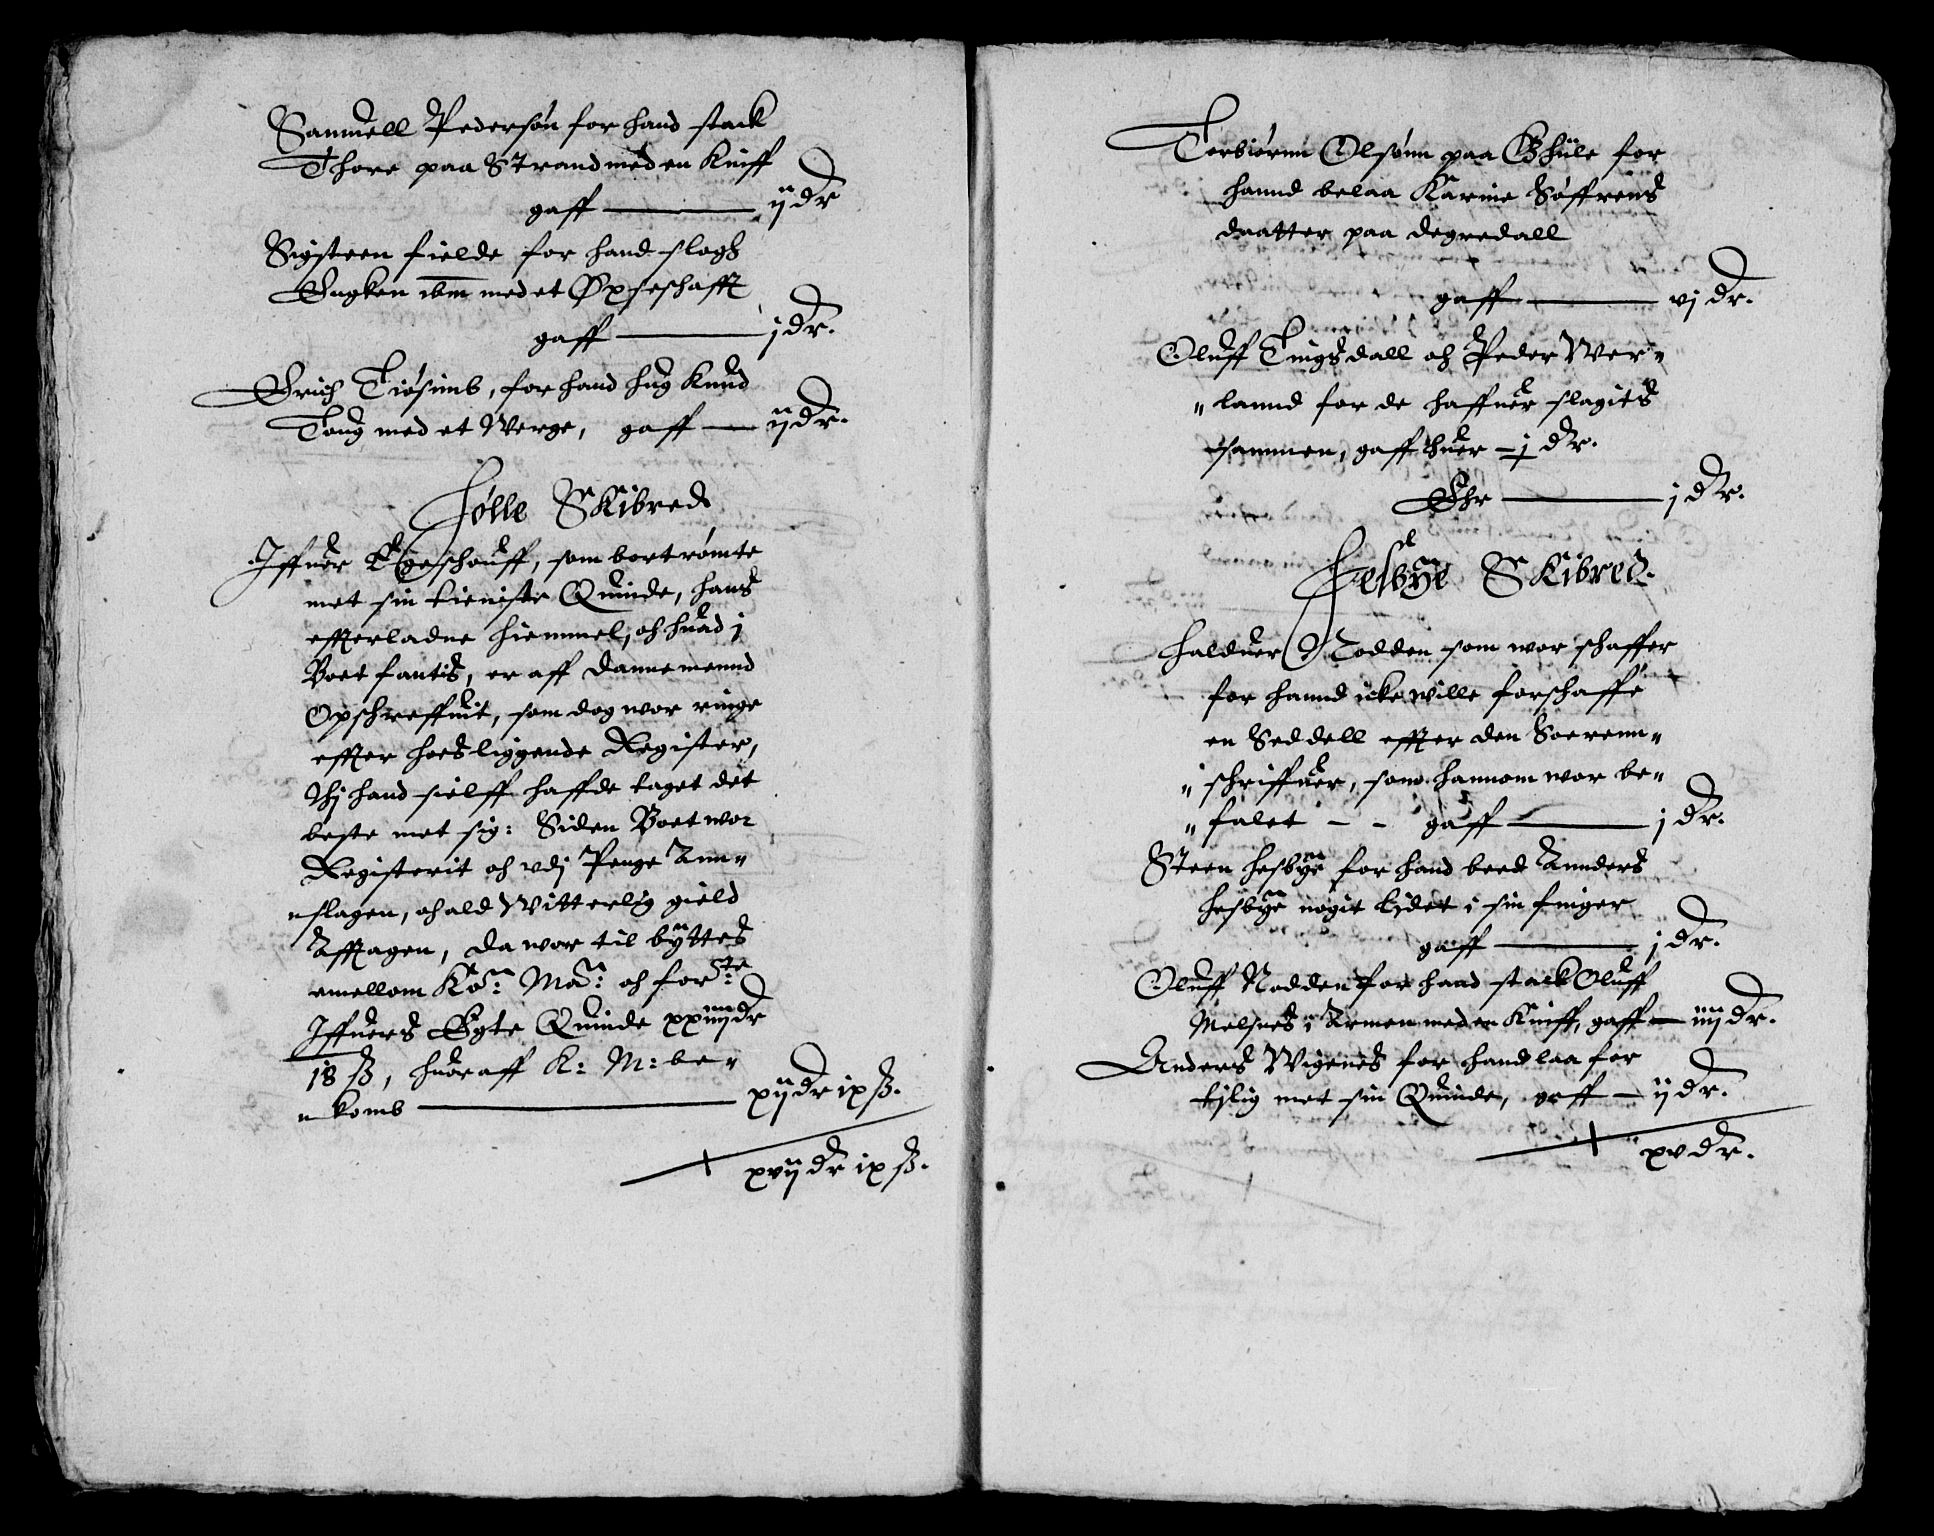 Samuell Pedersøn for hand stack
Thore paa Strand med en Kniff
gaff — ij dr
Sigsteen fielde for hand slogh
Engken ibm med et Øxseschafft
gaff — j dr.
Erich Tiøsimb, for hand hug Knud
Toug med et Werge, gaff — ij dr.
Jølle Skibred
Iffuer Egeschouff, som bortrømte
met sin tieniste Quinde, hans
efterladne hiemmel, oh huad j
Boet fantis, er aff dannemennd
Opschreffuit, som dog wor ringe
effter hoesliggende Register,
Thj hand sielff haffde taget det
beste met sig: Siden Boet wor
Registerit oh vdj Penge Ann„
„slagen, oh ald Witterlig gield
Afftagen, da wor til byttes
emellom Ko: Ma: oh forste:
Iffuers Egte Quinde xxiiij dr
18 ß, huoraff K: M: be„
„komb — xij dr ix ß.
xvij dr ix ß.
Torbiørnn Olsønn paa Ghule for
hannd belaa Karine Søffrens
daatter paa degredall
gaff — vj dr.
Oluff Tingsdall oh Peder Wer„
„lannd for de haffuer slagits
sammen, gaff huer – j dr.
Ehr — j dr.
Hesbye Skibred.
Halduer Nodden som wor schaffer
for hannd icke wille forschaffe
en Seddell effter den Soerenn„
„schriffuer, som hannom wor be„
„falet – – gaff — j dr.
Steen hesbye for hand beed Annders
hesbye nogit lidet i sin finger
gaff — j dr.
Oluff Nodden for hand stack Oluff
Melsnes i Armen med en Kniff, gaff — iiij dr.
Anders Wigenes for hand laa for
tijlig met sin Quinde, gaff — ij dr.
xv dr.